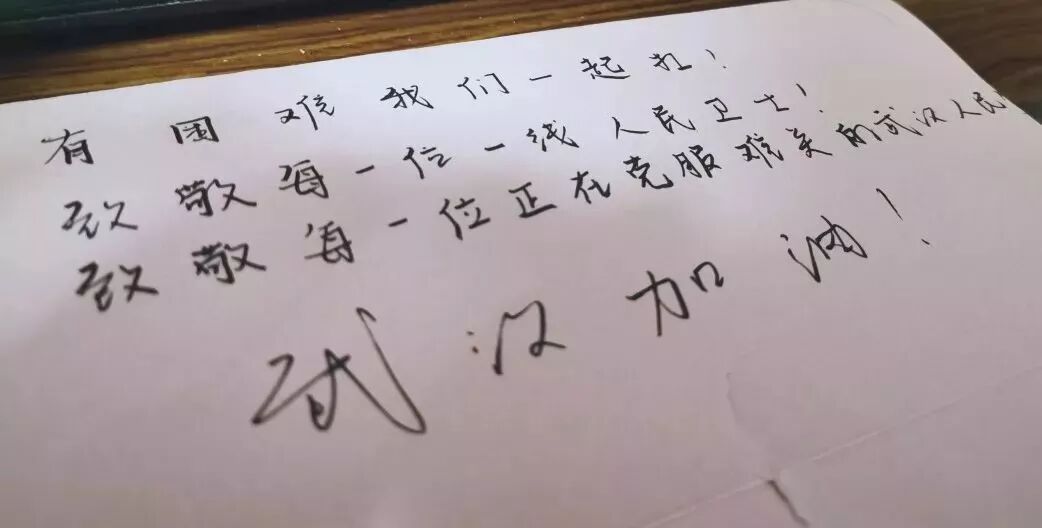 有困难我们一起扛!
致敬每一位一线人民卫士!
致敬每一位正在克服难关的武汉人民
武汉加油!